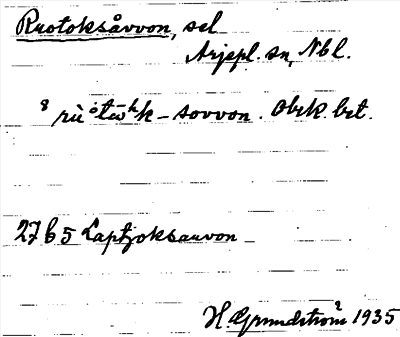 Ruotoksåvvon, sel
Arjepl. sn, Nbl.
sovvon. Obek. bet.
27 b 5 Laptjoksauvon
H. Grundström 1935